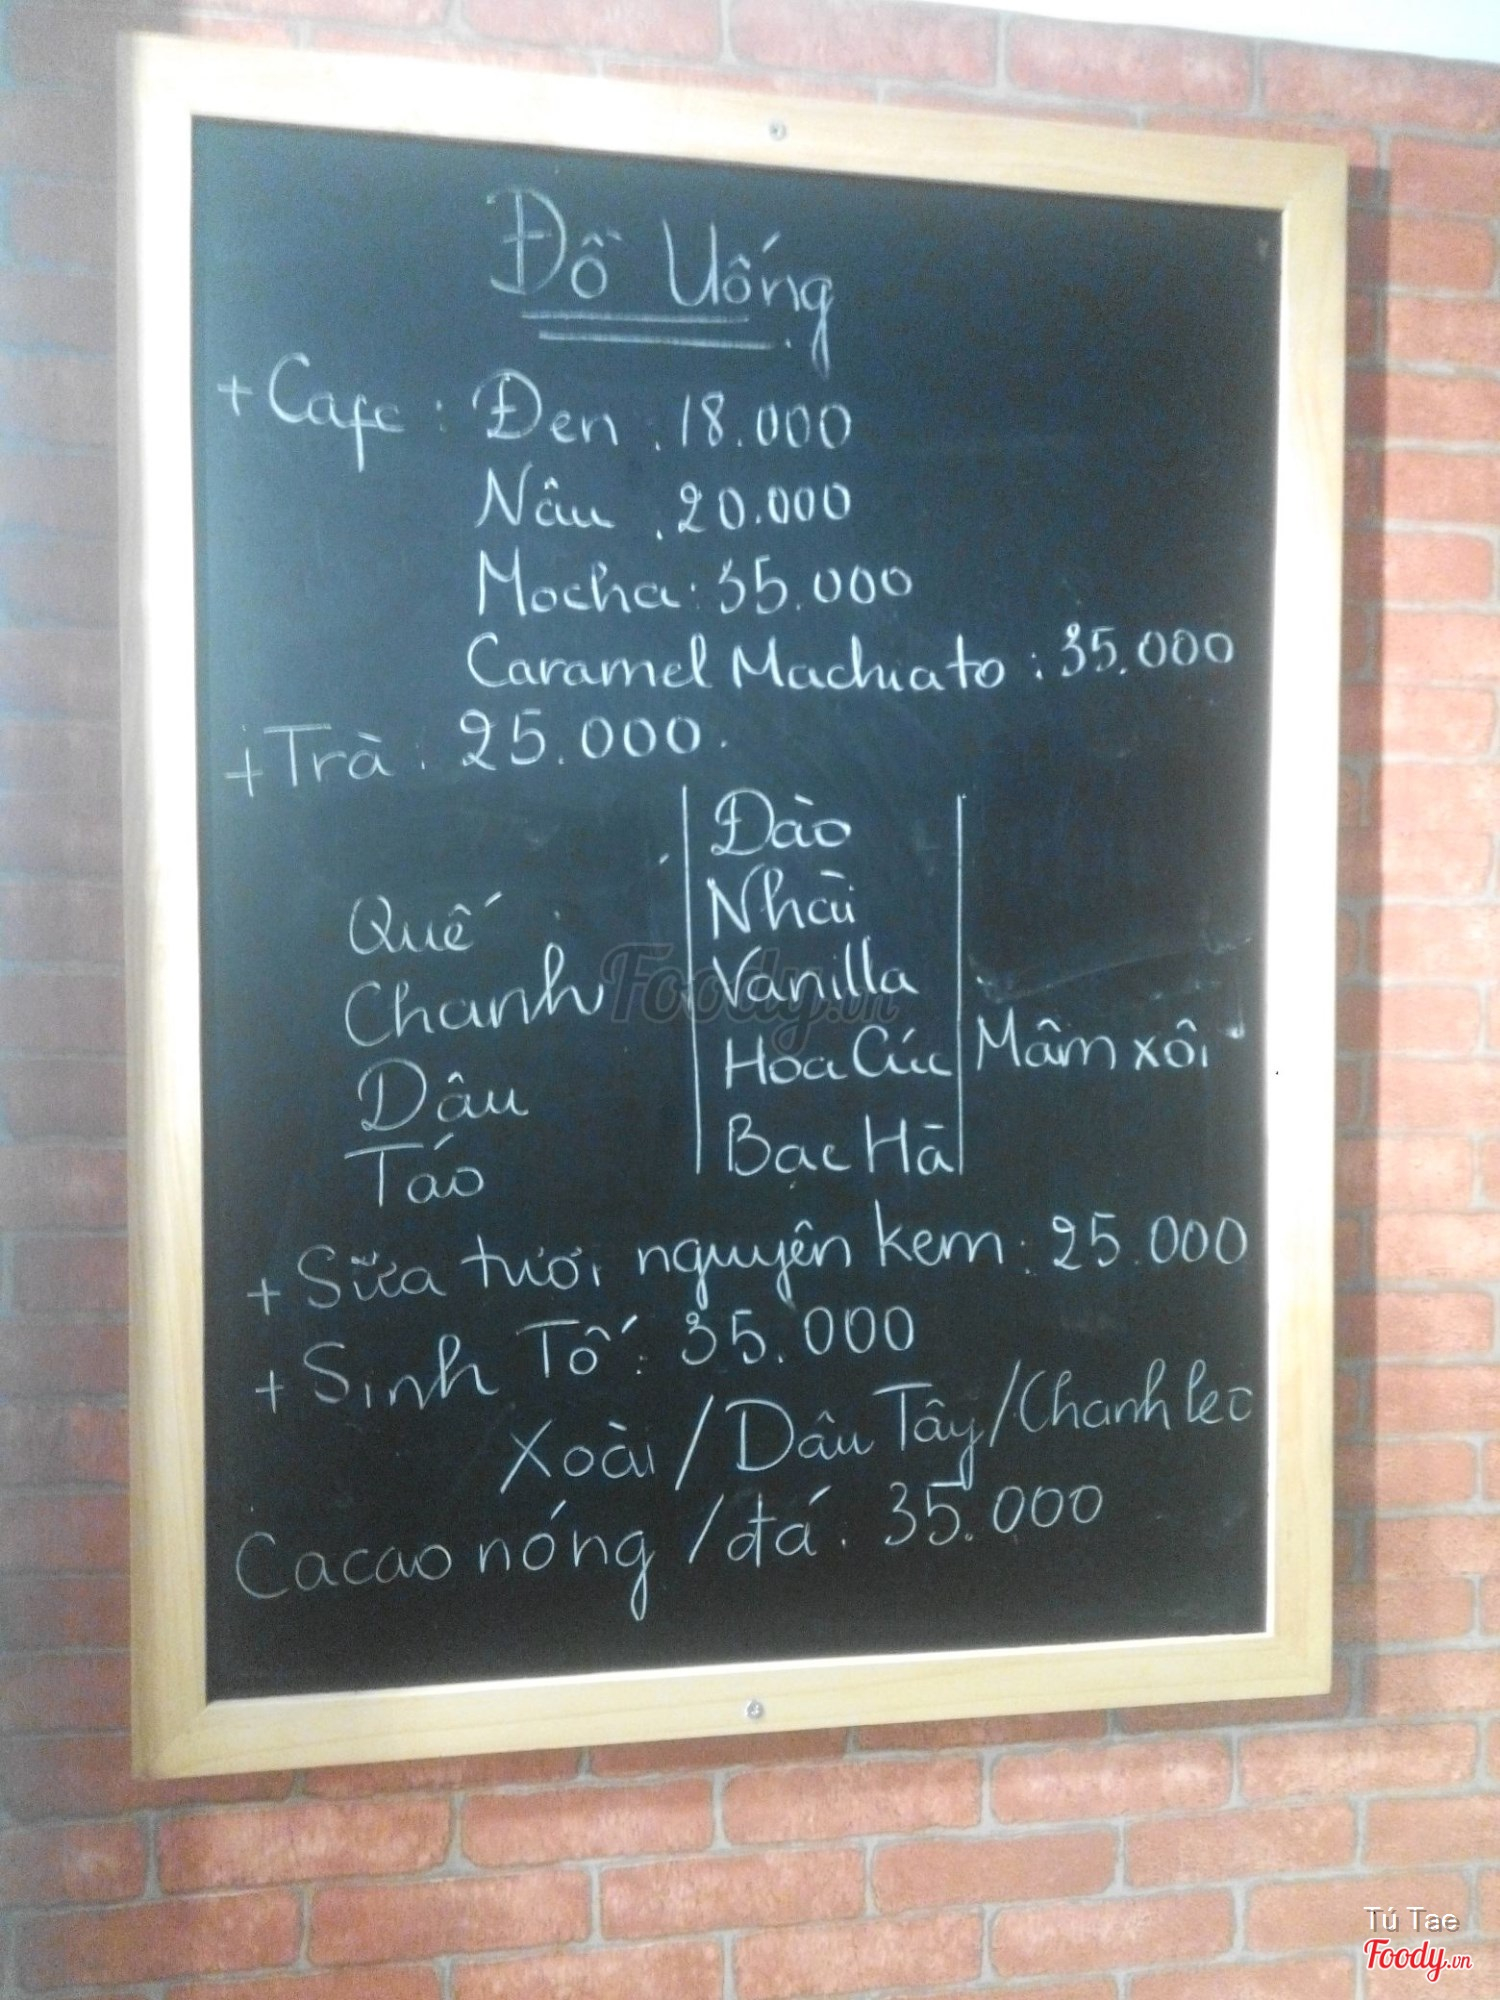 Đồ Uống
+ Cafe : Đen : 18.000
Nâu : 20.000
Mocha : 35.000
Caramel Machiato : 35.000
+ Trà : 25.000.
Quế
Chanh
Dâu
Táo
Đào
Nhài
Vanilla
Hoa Cúc
Bạc Hà
Mâm xôi
+ Sữa tươi nguyên kem : 25.000
+ Sinh Tố : 35.000
Xoài / Dâu Tây / Chanh leo
Cacao nóng / đá : 35.000
Foody.vn
Tú Tae
Foody.vn